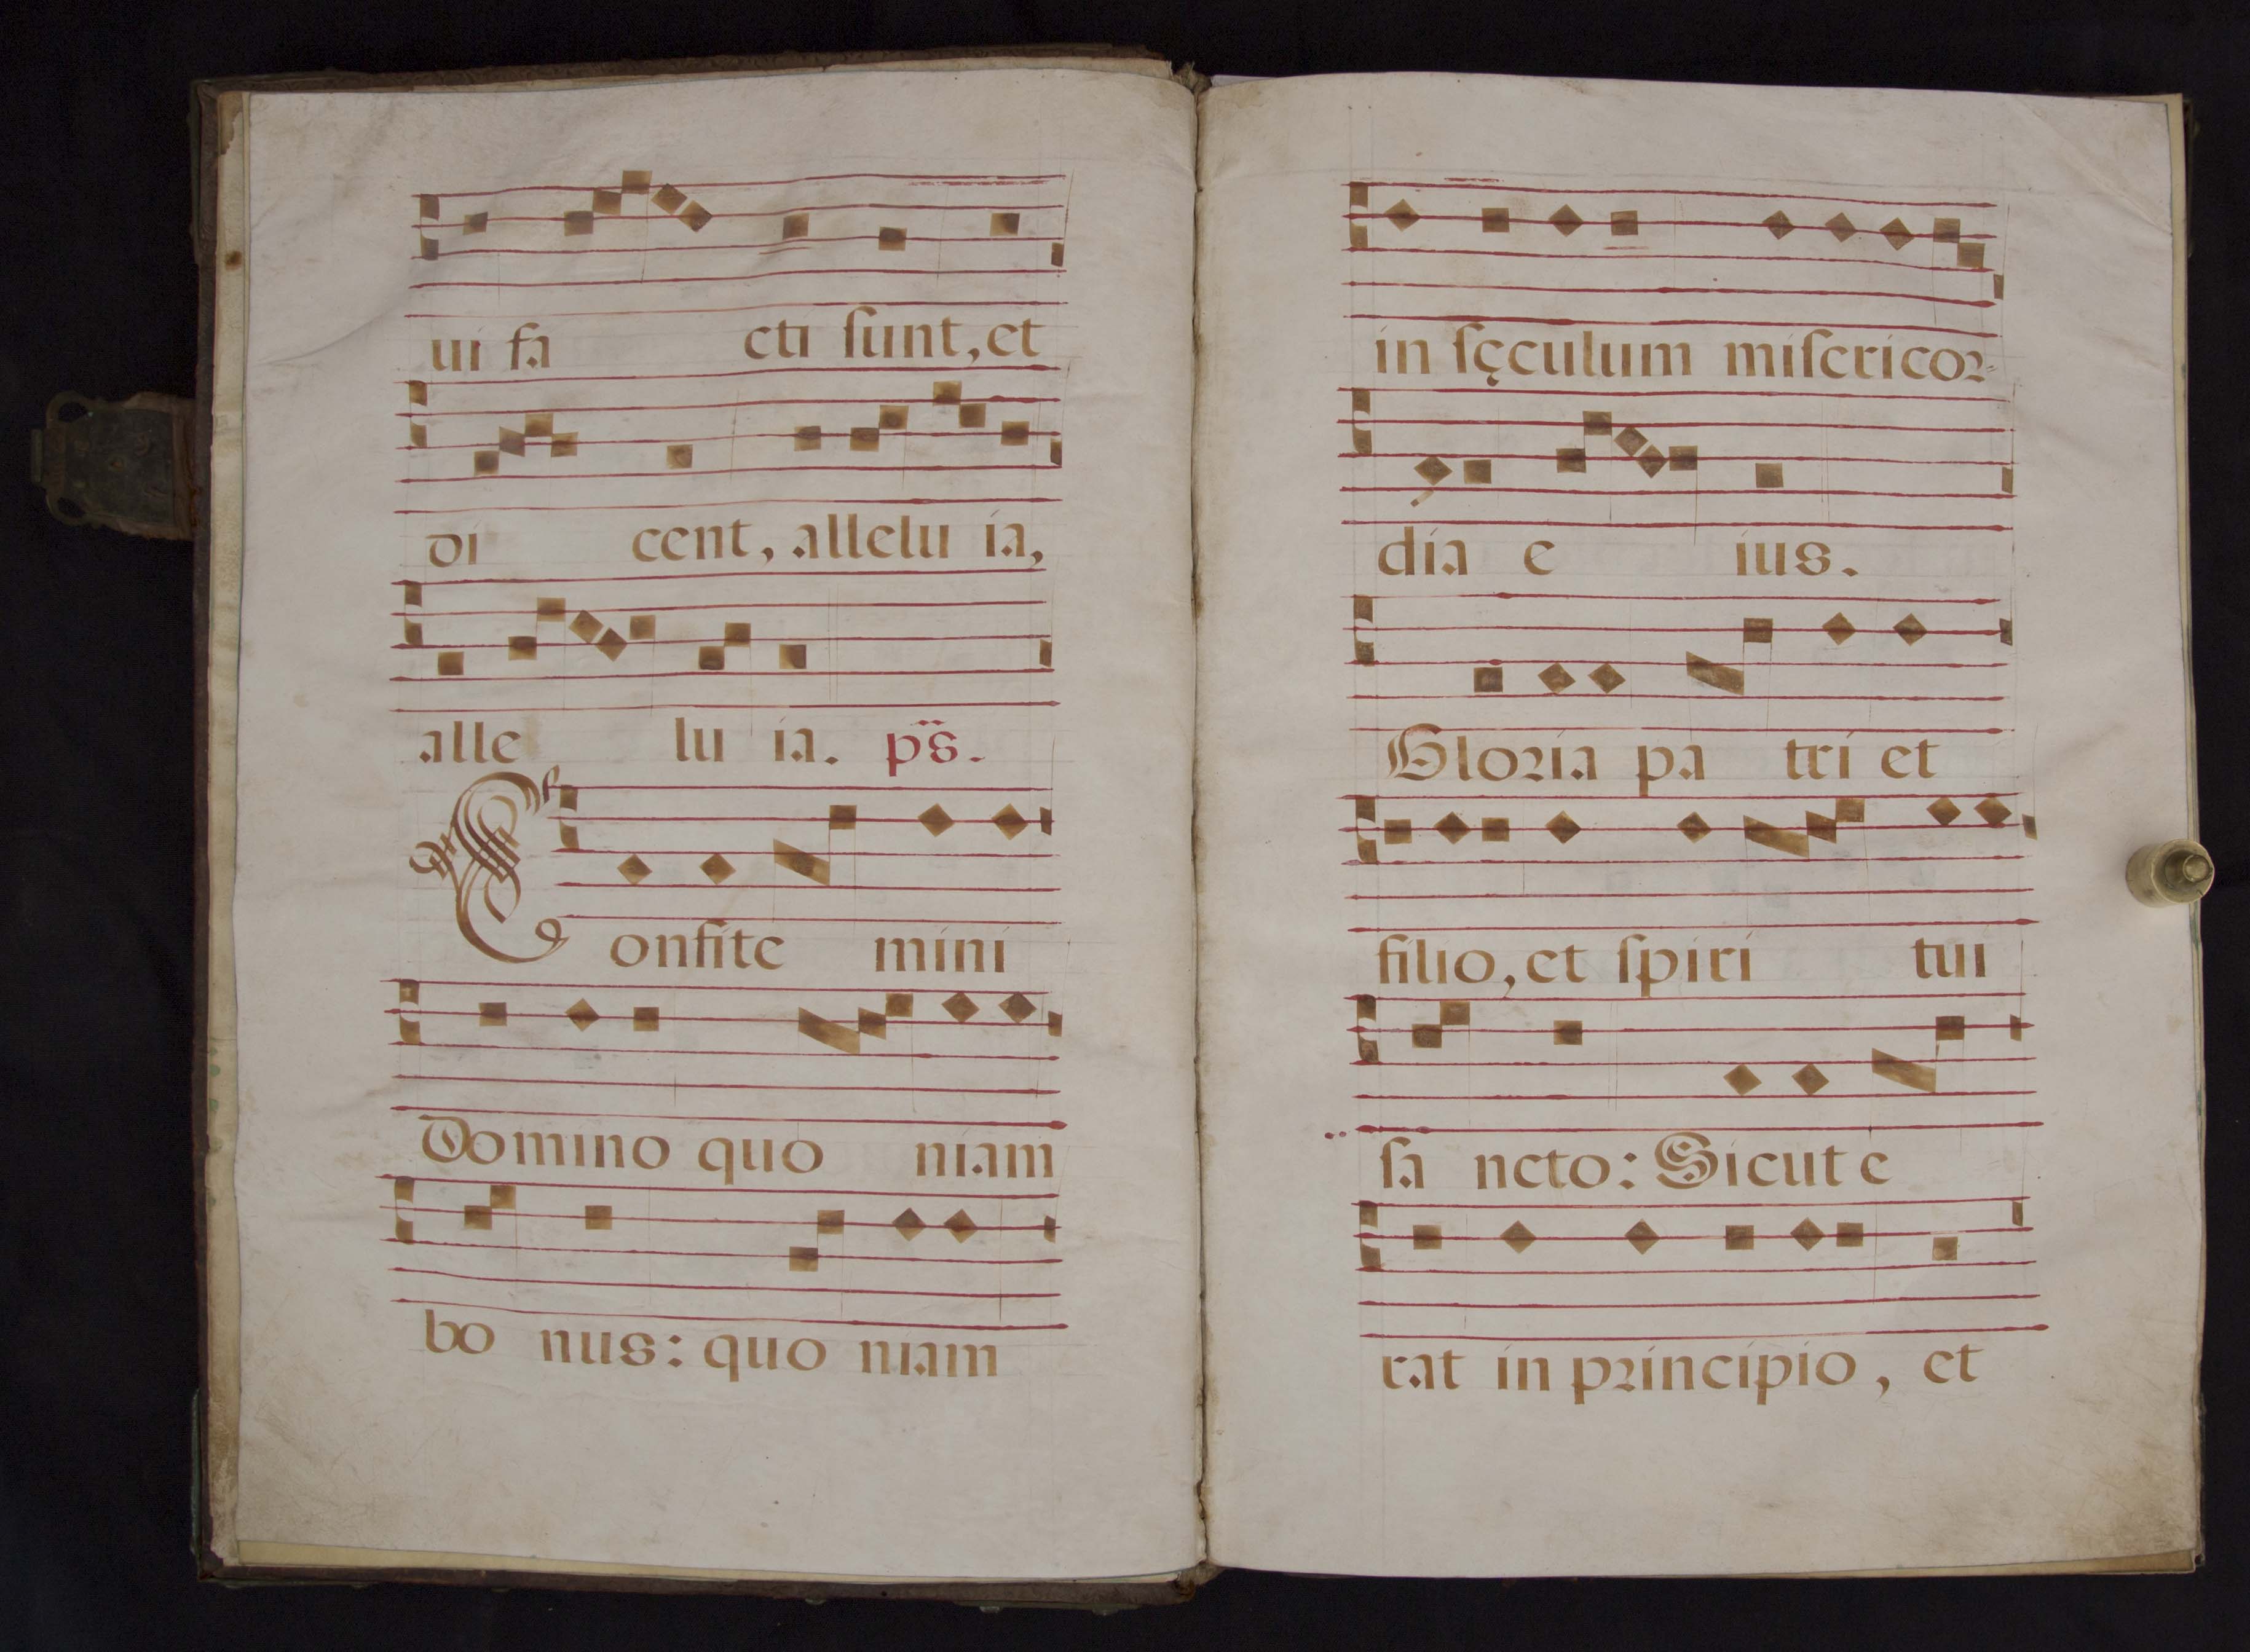 ui fa cti ſunt, et
di cent, allelu ia,
alle lu ia. ps.
Confite mini
Domino quo niam
bo nus: quo niam
in ſęculum miſericor-
dia e ius.
Gloria pa tri et
filio, et ſpiri tui
ſa ncto: Sicut e
rat in principio, et